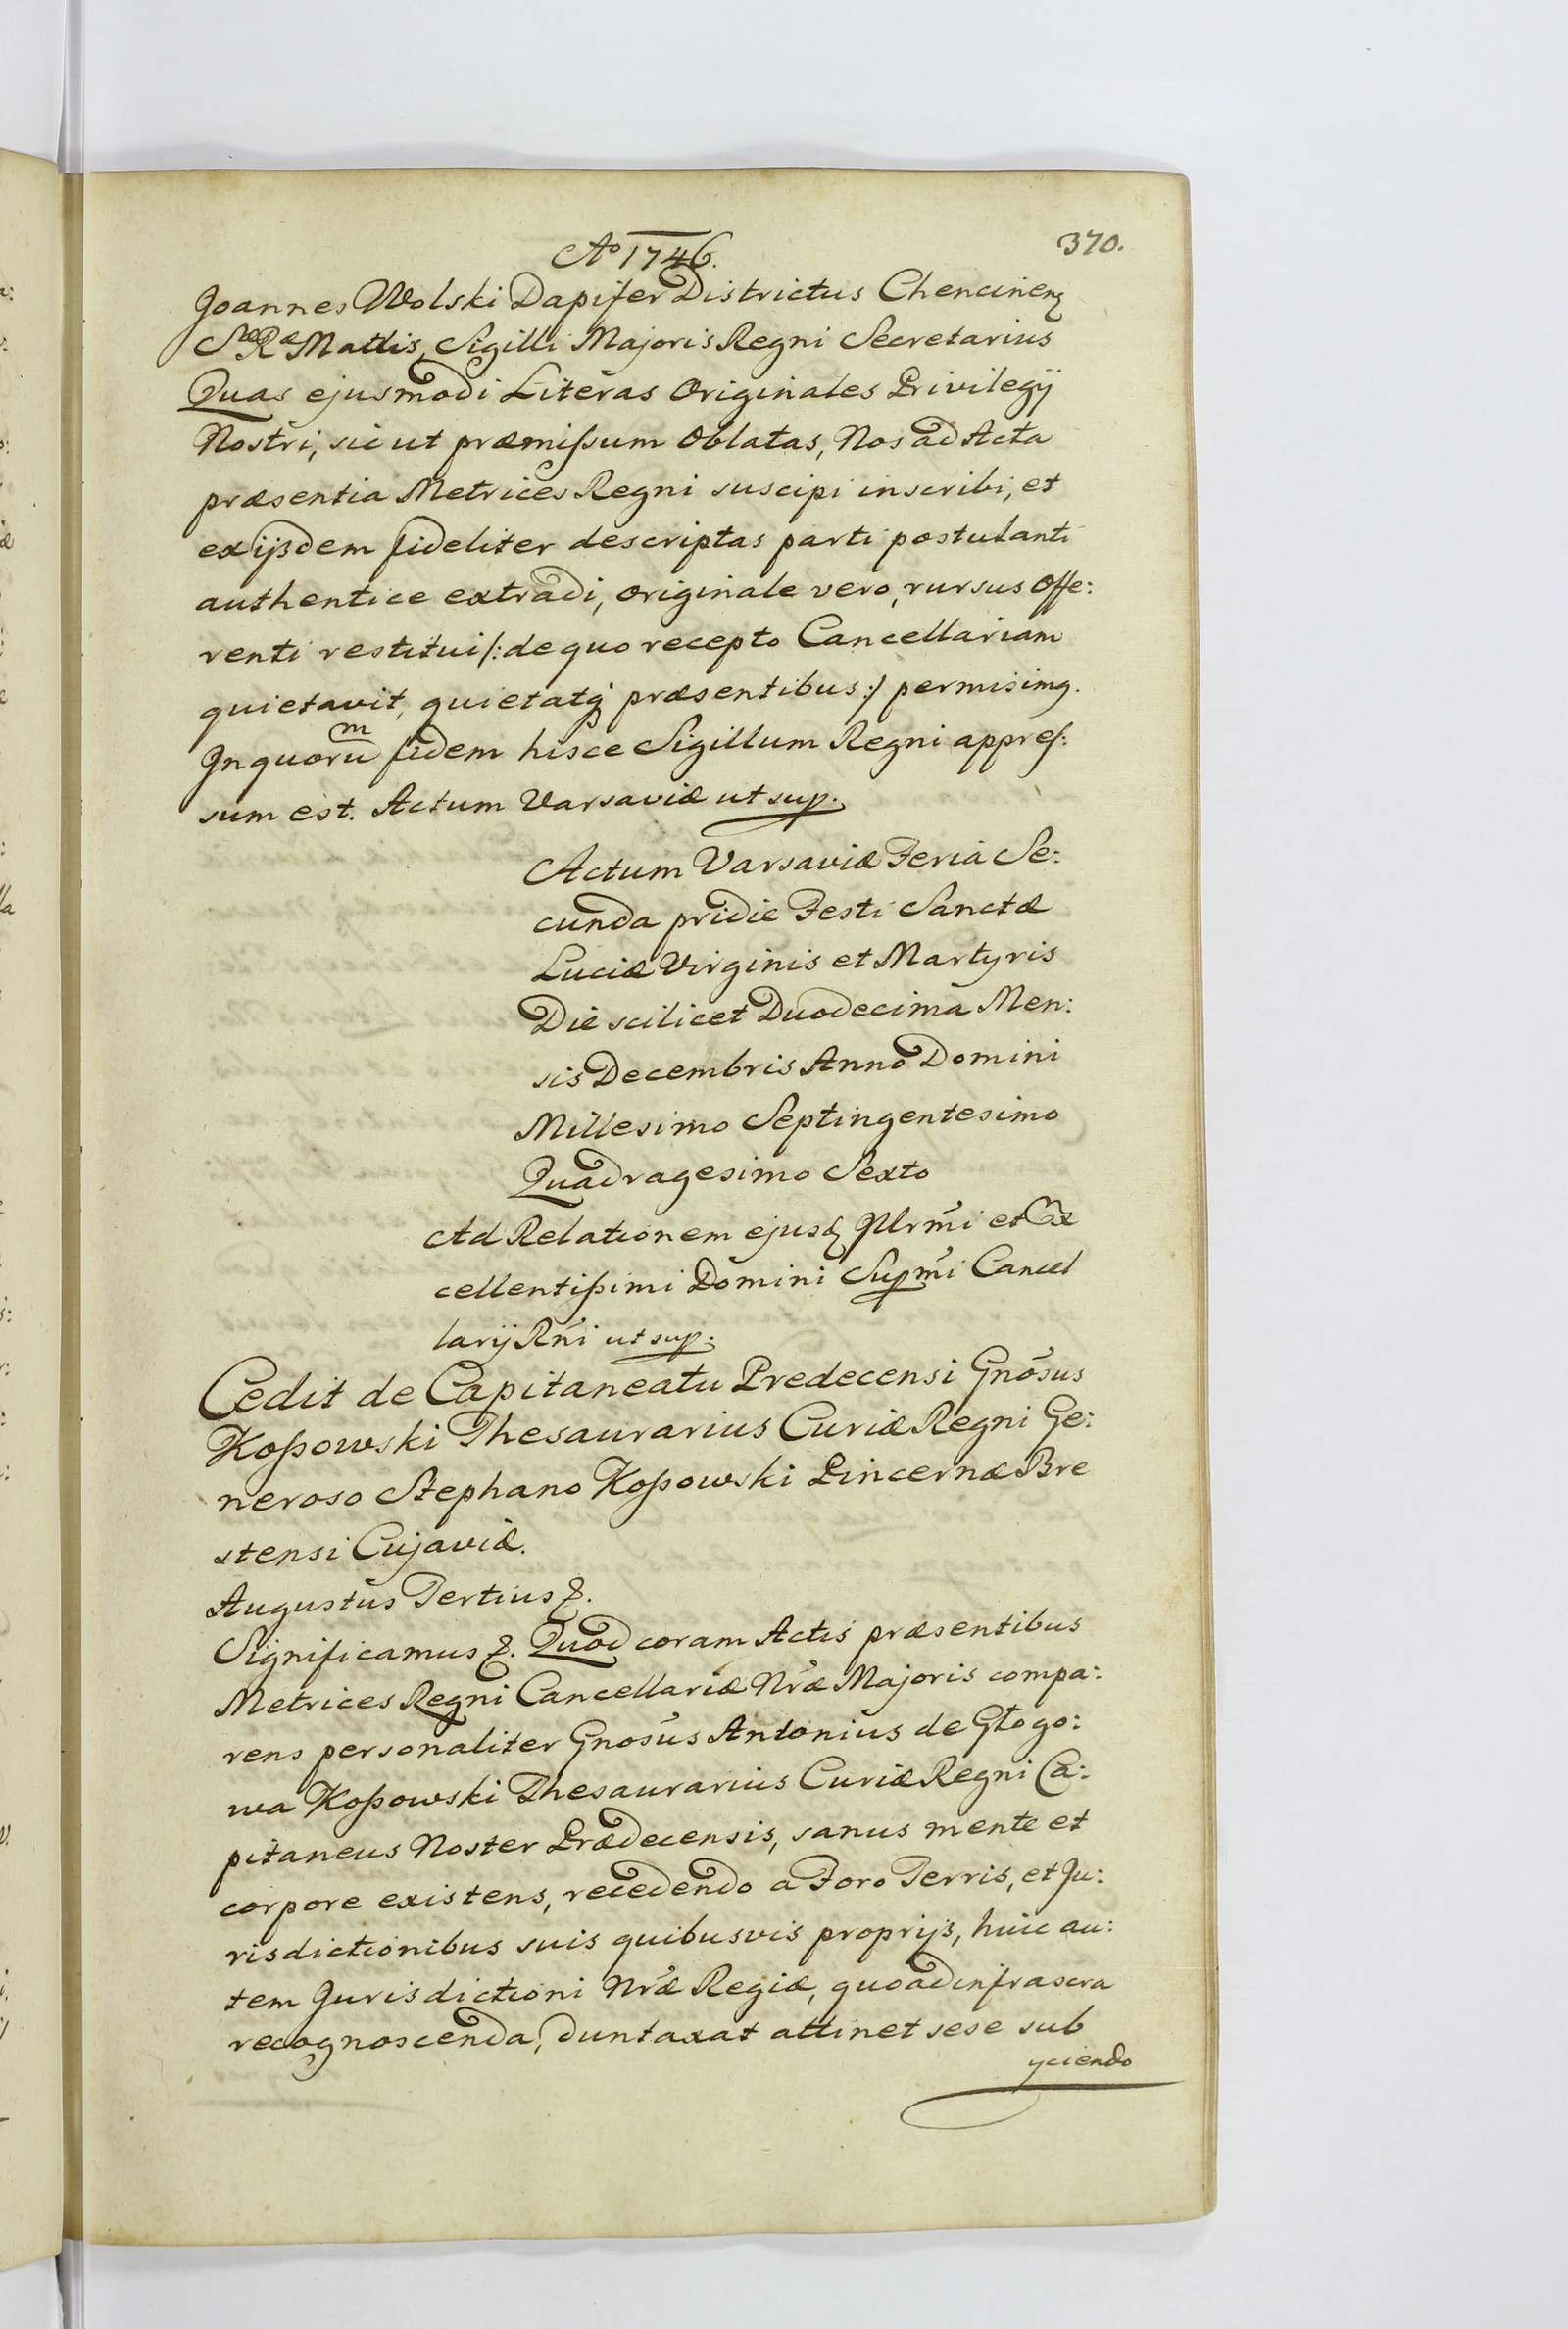 Ao 1746.
370.
Joannes Wolski Dapifer Districtus Chencinenȝ
Sæ Ræ Mattis, Sigilli Majoris Regni Secretarius
Quas ejusmodi Literas Originales Privilegij
Nostri, sic ut præmißum Oblatas, Nos ad Acta
præsentia Metrices Regni suscipi inscribi, et
ex ijsdem fideliter descriptas parti postulanti
authentice extradi, originale vero, rursus offe:
renti restitui /: de quo recepto Cancellariam
quietavit, quietatq́ præsentibus :/ permisimꝯ.
In quorum fidem hisce Sigillum Regni appres:
sum est. Actum Varsaviæ ut sup.
Actum Varsaviæ Feria Se:
cunda pridie Festi Sanctæ
Luciæ Virginis et Martyris
Die scilicet Duodecima Men:
sis Decembris Anno Domini
Millesimo Septingentesimo
Quadragesimo Sexto
Ad Relationem ejusd Illrm̃i et Ex
cellentißimi Domini Supm̃i Cancel
larij Rñi ut sup.
Cedit de Capitaneatu Predecensi Gnõsus
Koßowski Thesaurarius Curiæ Regni Ge:
neroso Stephano Koßowski Pincernæ Bre
stensi Cujaviæ.
Augustus Tertius &.
Significamus &. Quod coram Actis præsentibus
Metrices Regni Cancellariæ Nræ Majoris compa:
rens personaliter Gnosus Antonius de Głogo:
wa Koßowski Thesaurarius Curiæ Regni Ca:
pitaneus Noster Prædecensis, sanus mente et
corpore existens, recedendo a Foro Terris, et Ju:
risdictionibus suis quibusvis proprijs, huic au:
tem Jurisdictioni Nræ Regiæ, quoad infrascra
recognoscenda, duntaxat attinet sese sub
yciendo